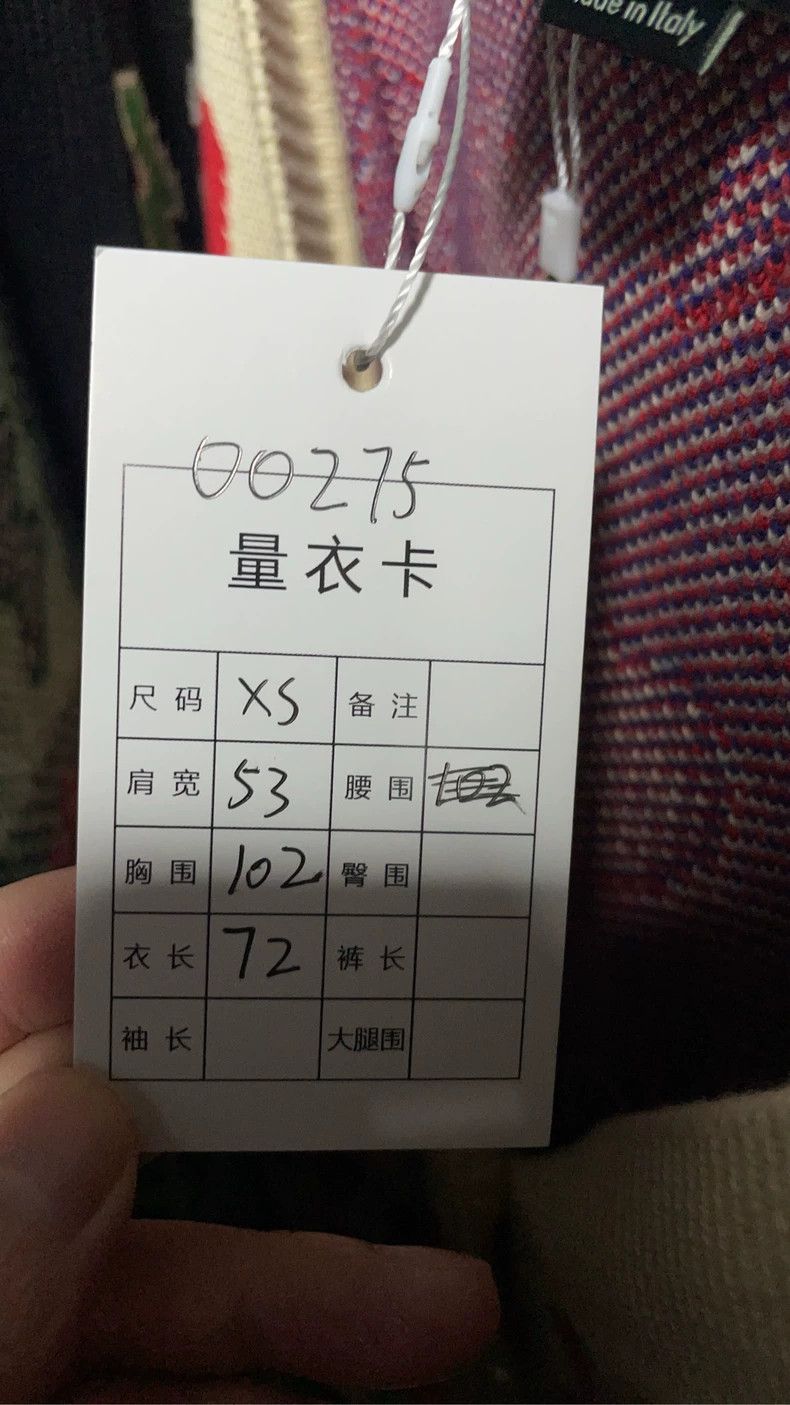 Made in Italy
00275
量衣卡
尺码 XS 备注
肩宽 53 腰围
胸围 102 臀围
衣长 72 裤长
袖长 大腿围